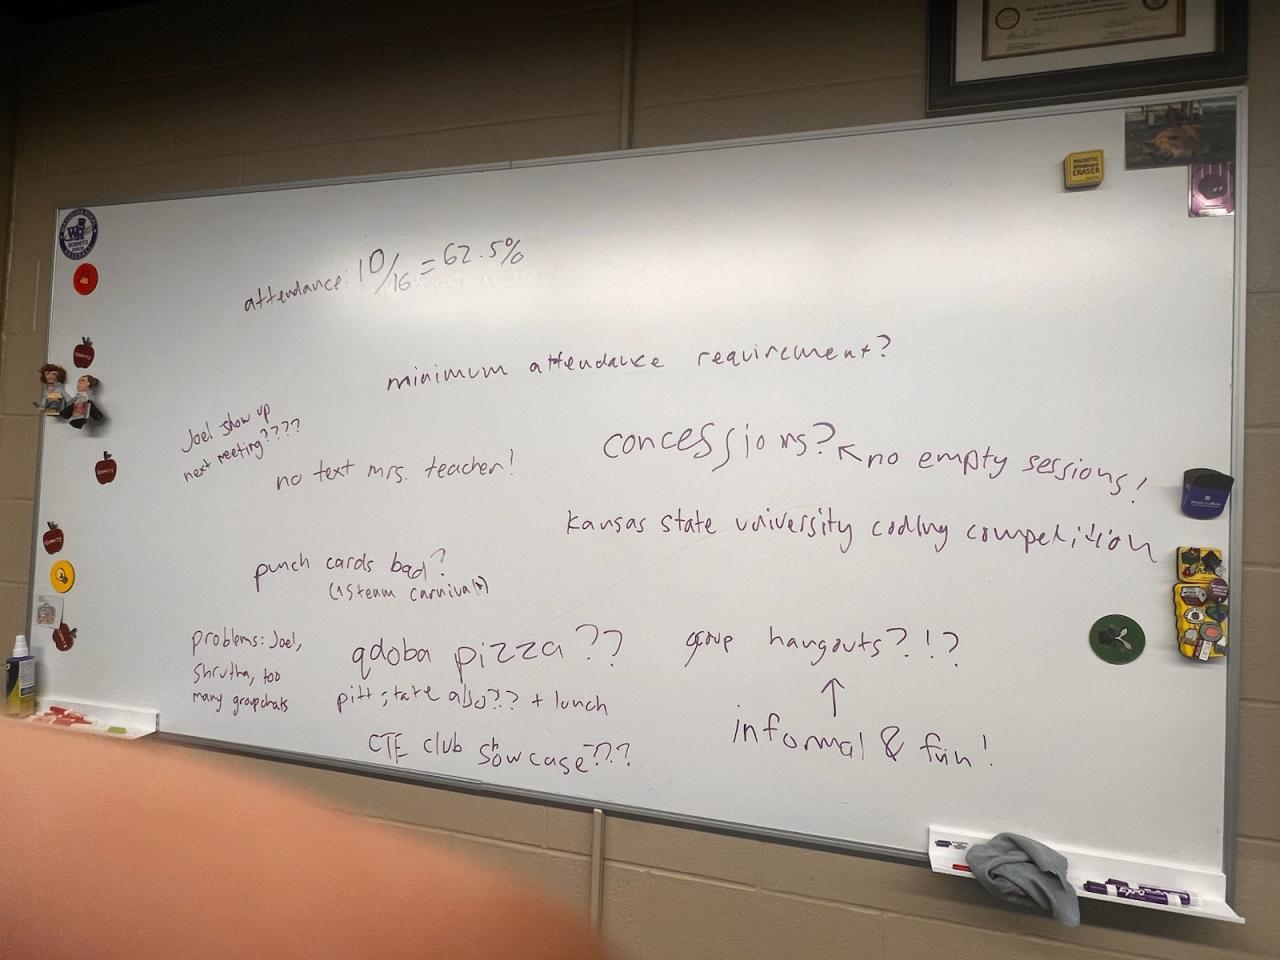 attendance: 10/16 = 62.5%
minimum attendance requirement?
Joel show up
next meeting????
no text mrs. teacher!
concessions? ↖no empty sessions!
Kansas state university coding competition
punch cards bad?
(steam carnival)
problems: Joel,
Shrutha, too
many groupchats
qdoba pizza??
pitt state also?? + lunch
CTE club showcase???
group hangouts?!?
↑
informal & fun!
MAGNETIC
ERASER
EXPO